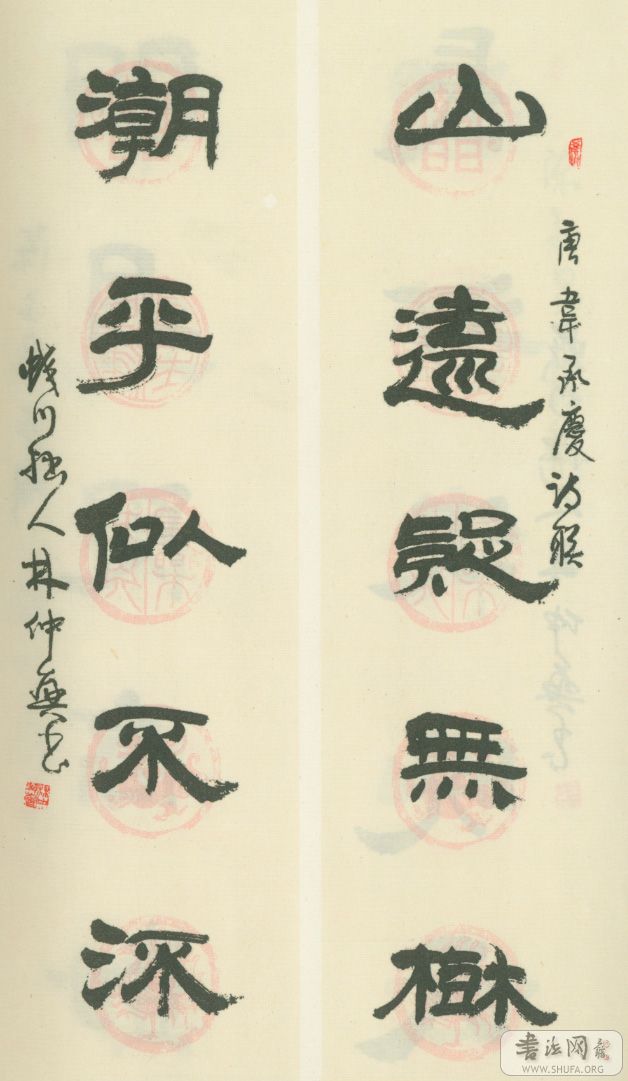 唐韋承慶詩联
山遠疑無樹
潮平似不流
林仲興书
書法网
WWW.SHUFA.ORG